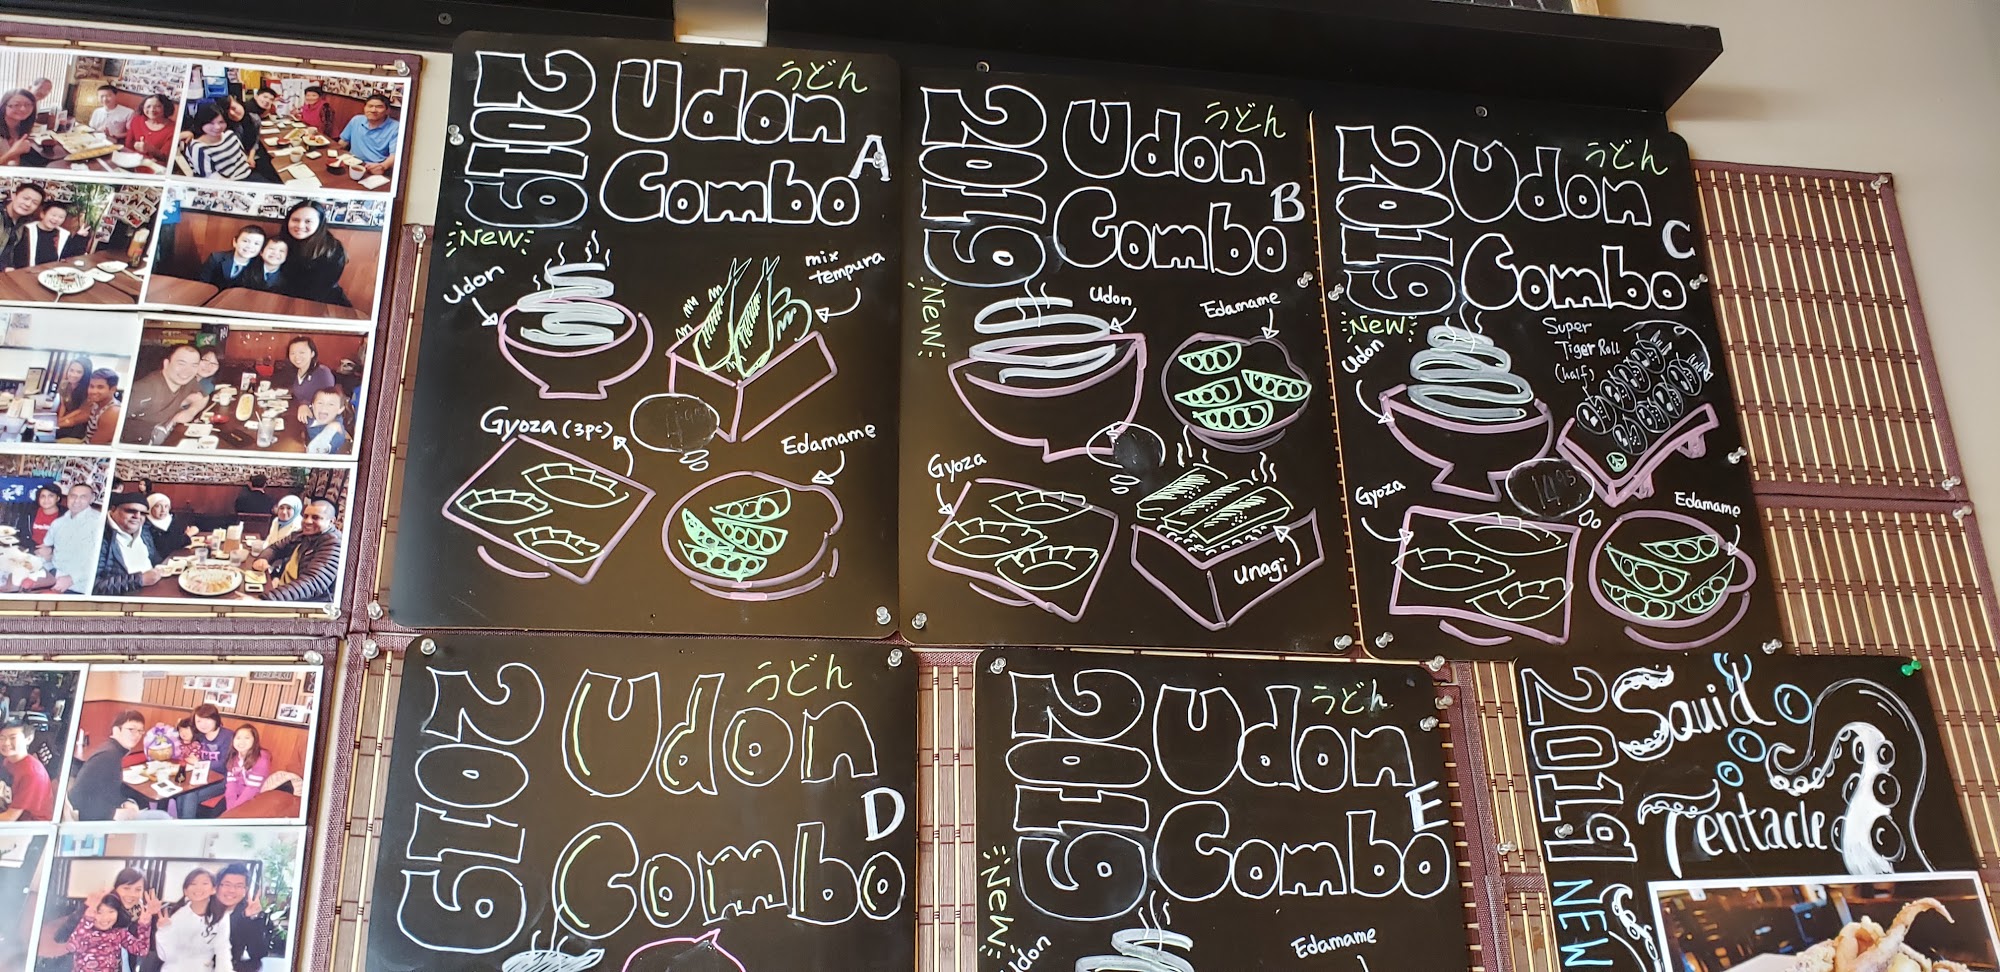 2019
うどん
Udon
Combo
A
New
Udon
mix
tempura
Gyoza (3pc)
Edamame
2019
うどん
Udon
Combo
B
New
Udon
Edamame
Gyoza
Unagi
2019
うどん
Udon
Combo
C
New
Udon
Super
Tiger Roll
(half)
14.95
Gyoza
Edamame
2019
うどん
Udon
Combo
D
2019
うどん
Udon
Combo
E
New
Udon
Edamame
2019 NEW
Squid
Tentacle